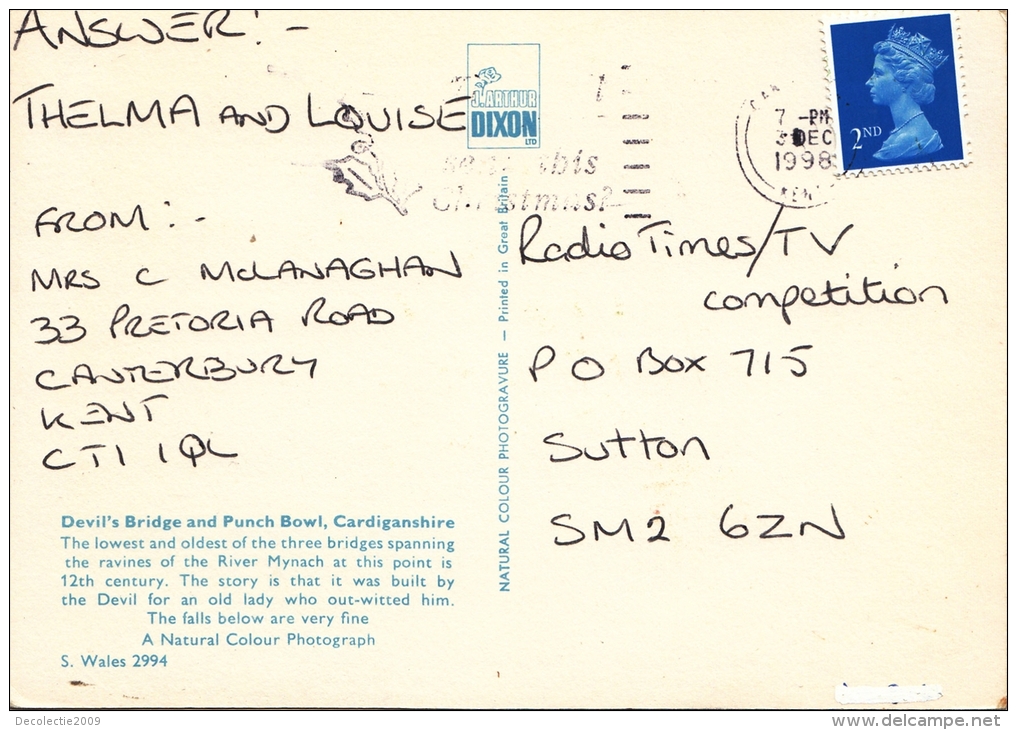 ANSWER:-
THELMA AND LOUISE
FROM:-
MRS C McLANAGHAN
33 PRETORIA ROAD
CANTERBURY
KENT
CT1 1QL
Devil's Bridge and Punch Bowl, Cardiganshire
The lowest and oldest of the three bridges spanning
the ravines of the River Mynach at this point is
12th century. The story is that it was built by
the Devil for an old lady who out-witted him.
The falls below are very fine
A Natural Colour Photograph
S. Wales 2994
J. ARTHUR
DIXON
LTD
this
Christmas?
NATURAL COLOUR PHOTOGRAVURE — Printed in Great Britain.
7 -PM
DEC
1998
2ND
Radio Times/TV
competition
P O Box 715
Sutton
SM2 6ZN
Decolectie2009
www.delcampe.net